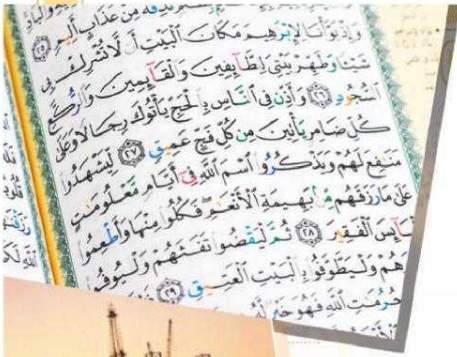 نُّذِقْهُ مِنْ عَذَابٍ أَلِيمٍ ٢٥
وَإِذْ بَوَّأْنَا لِإِبْرَٰهِيمَ مَكَانَ ٱلْبَيْتِ أَن لَّا تُشْرِكْ بِى
شَيْـًٔا وَطَهِّرْ بَيْتِىَ لِلطَّآئِفِينَ وَٱلْقَآئِمِينَ وَٱلرُّكَّعِ
ٱلسُّجُودِ ٢٦ وَأَذِّن فِى ٱلنَّاسِ بِٱلْحَجِّ يَأْتُوكَ رِجَالًا وَعَلَىٰ
كُلِّ ضَامِرٍ يَأْتِينَ مِن كُلِّ فَجٍّ عَمِيقٍ ٢٧ لِّيَشْهَدُوا۟
مَنَٰفِعَ لَهُمْ وَيَذْكُرُوا۟ ٱسْمَ ٱللَّهِ فِىٓ أَيَّامٍ مَّعْلُومَٰتٍ
عَلَىٰ مَا رَزَقَهُم مِّنۢ بَهِيمَةِ ٱلْأَنْعَٰمِ فَكُلُوا۟ مِنْهَا وَأَطْعِمُوا۟
ٱلْفَقِيرَ ٢٨ ثُمَّ لْيَقْضُوا۟ تَفَثَهُمْ وَلْيُوفُوا۟
وَلْيَطَّوَّفُوا۟ بِٱلْبَيْتِ ٱلْعَتِيقِ ٢٩
حُرُمَٰتِ ٱللَّهِ فَهُوَ خَيْرٌ لَّهُۥ